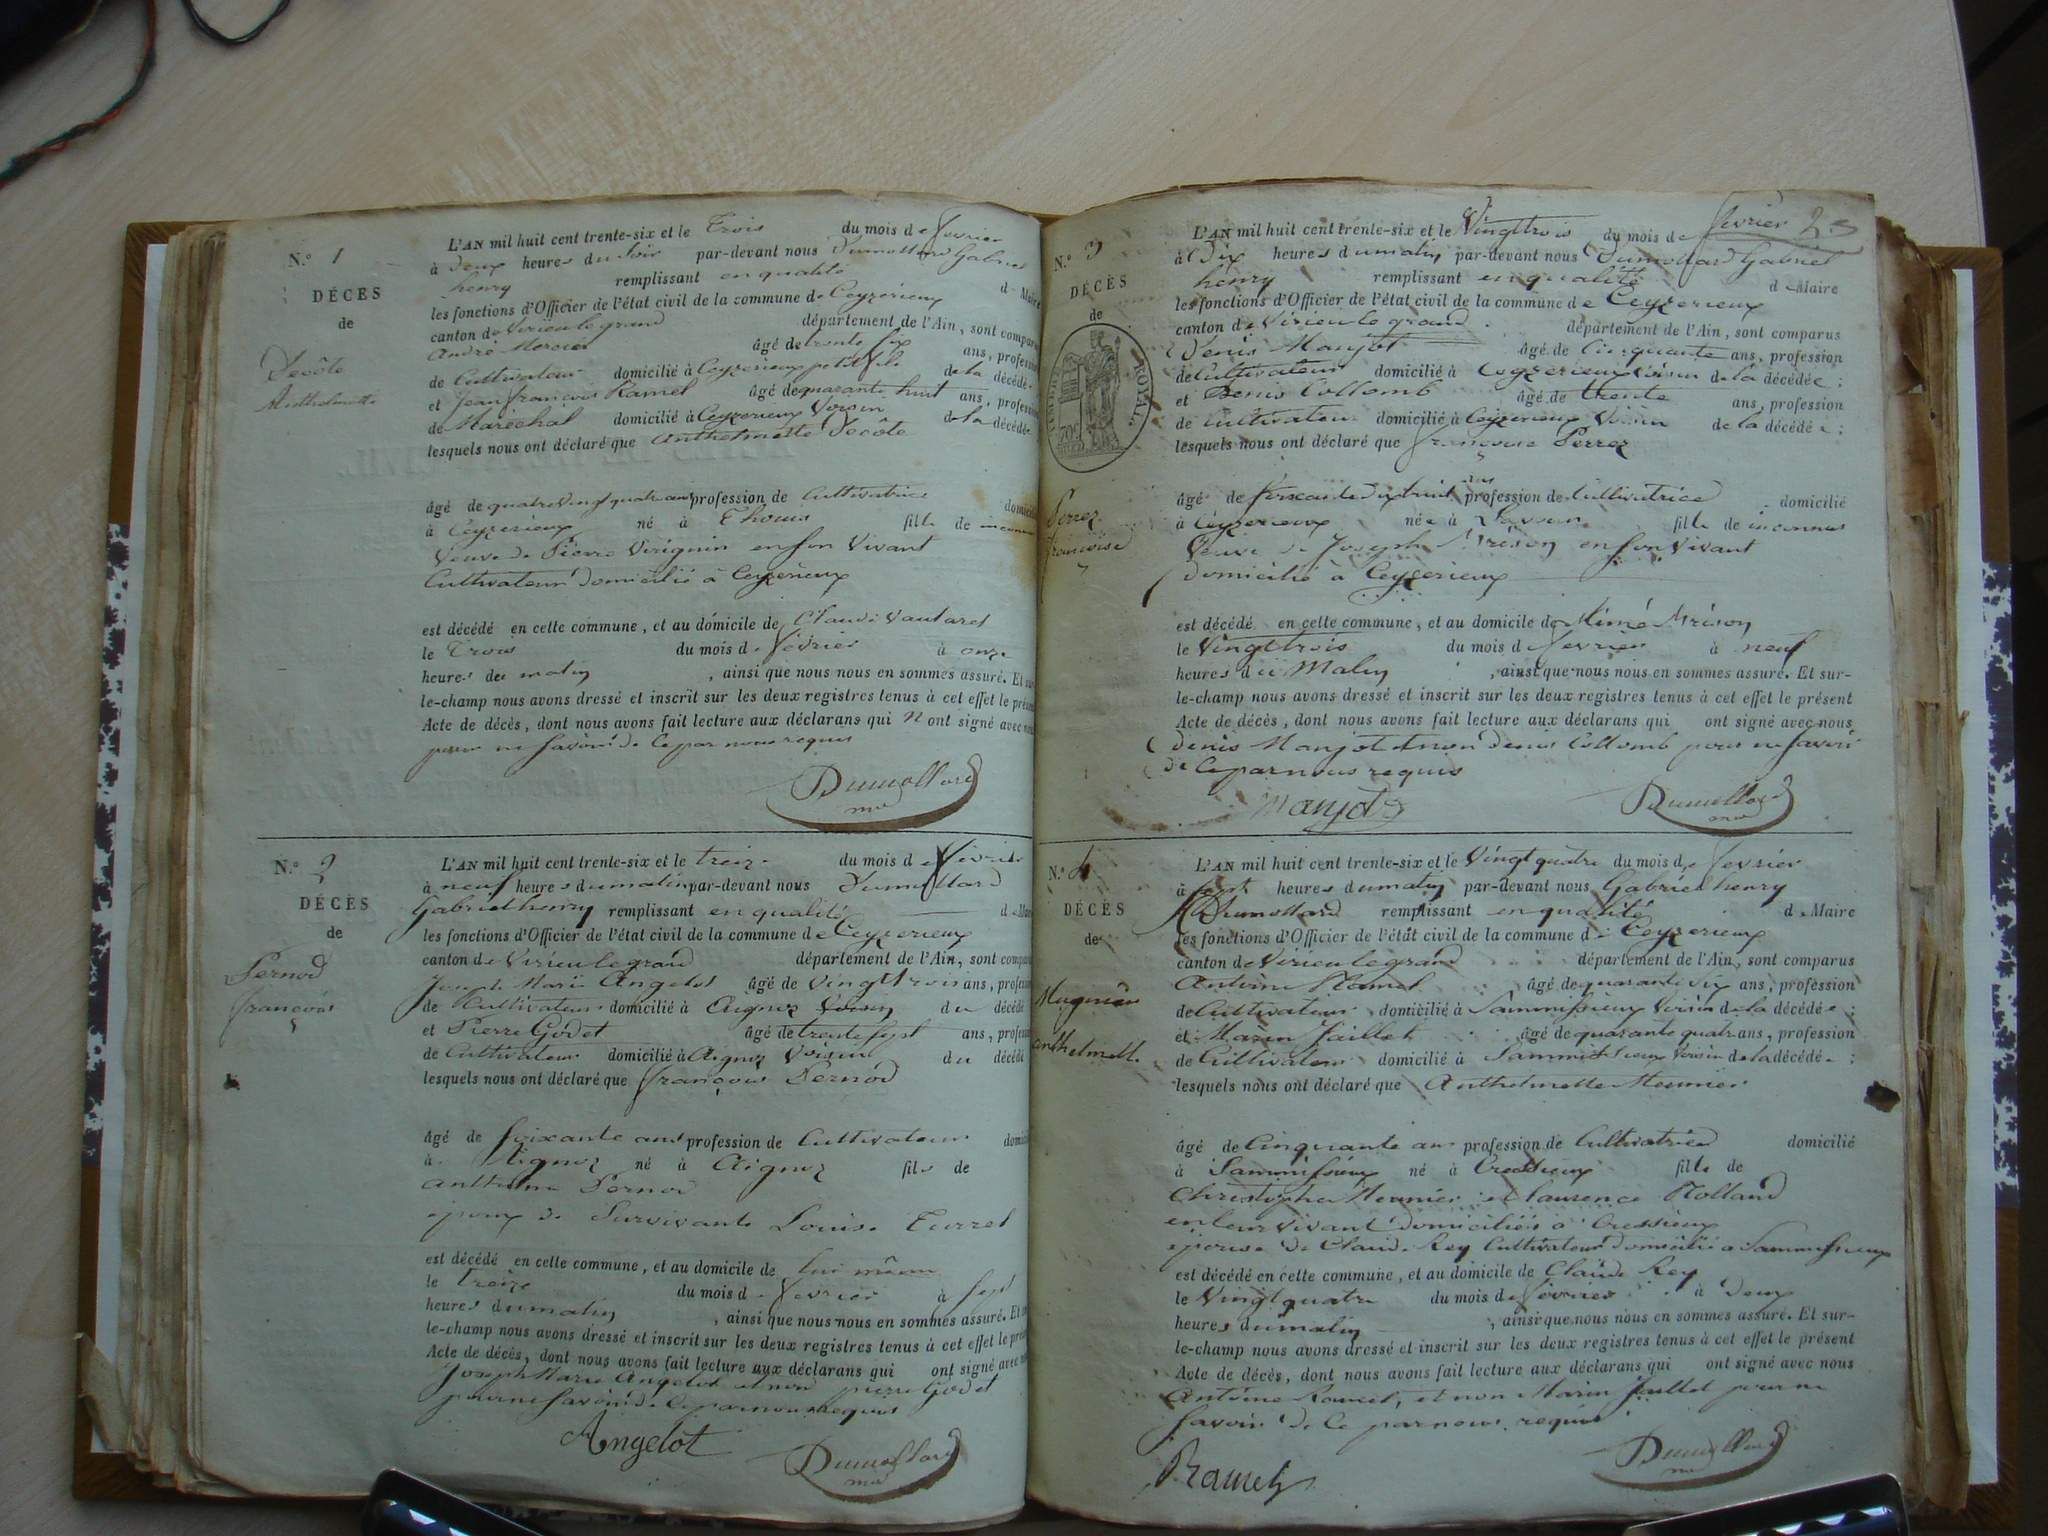 N.º 1
DÉCÈS
de
Decôte
Anthelmette
L'AN mil huit cent trente-six et le Trois du mois de fevrier
à Deux heures du Soir par-devant nous Dumollard Gabriel
henry remplissant en qualité de Maire
les fonctions d'Officier de l'état civil de la commune de Ceyzerieux
canton de Virieu le grand département de l'Ain, sont comparus
André Mercier âgé de trente six ans, profession
de Cultivateur domicilié à Ceyzerieux petit fils de la décédée
et Jean francois Ramel âgé de quarante huit ans, profession
de Maréchal domicilié à Ceyzerieux Voisin de la décédée
lesquels nous ont déclaré que Anthelmette Decôte
âgé de quatre Vingt quatre ans profession de Cultivatrice domicilié
à Ceyzerieux né à Thouis fille de inconnu
Veuve de Pierre Virignin en son Vivant
Cultivateur domicilié à Ceyzérieux
est décédé en cette commune, et au domicile de Claude Vautaret
le Trois du mois de fevrier à onze
heures du matin, ainsi que nous nous en sommes assuré. Et sur-
le-champ nous avons dressé et inscrit sur les deux registres tenus à cet effet le présent
Acte de décès, dont nous avons fait lecture aux déclarans qui n'ont signé avec nous
pour ne savoir de ce par nous requis
Dumollard
N.º 2
DÉCÈS
de
Pernod
françois
L'AN mil huit cent trente-six et le treize du mois de fevrier
à neuf heures du matin par-devant nous Dumollard
Gabriel henry remplissant en qualité de Maire
les fonctions d'Officier de l'état civil de la commune de Ceyzerieux
canton de Virieu le grand département de l'Ain, sont comparus
Joseph Marie Angelot âgé de Vingt trois ans, profession
de Cultivateur domicilié à Aignoz Voisin du décédé
et Pierre Godet âgé de trente sept ans, profession
de Cultivateur domicilié à Aignoz Voisin du décédé
lesquels nous ont déclaré que françois Pernod
âgé de soixante ans profession de Cultivateur domicilié
à Aignoz né à Aignoz fils de
anthelme Pernod
epoux de Survivante Louise Turrel
est décédé en cette commune, et au domicile de lui même
le treize du mois de fevrier à sept
heures du matin, ainsi que nous nous en sommes assuré. Et sur-
le-champ nous avons dressé et inscrit sur les deux registres tenus à cet effet le présent
Acte de décès, dont nous avons fait lecture aux déclarans qui ont signé avec nous
Joseph Marie Angelot et non pierre Godet
pour ne savoir de ce par nous requis
Angelot Dumollard
23
N.º 3
DÉCÈS
de
TIMBRE ROYAL
Perrez
françoise
L'AN mil huit cent trente-six et le Vingt trois du mois de fevrier
à Dix heures du matin par-devant nous Dumollard Gabriel
henry remplissant en qualité de Maire
les fonctions d'Officier de l'état civil de la commune de Ceyzerieux
canton de Virieu le grand département de l'Ain, sont comparus
Denis Manjot âgé de Cinquante ans, profession
de Cultivateur domicilié à Ceyzerieux Voisin de la décédée;
et Denis Collomb âgé de trente ans, profession
de Cultivateur domicilié à Ceyzerieux Voisin de la décédée;
lesquels nous ont déclaré que françoise Perrez
âgé de soixante dix huit ans profession de Cultivatrice domicilié
à Ceyzerieux née à fille de inconnus
Veuve de Joseph en son Vivant
domicilié à Ceyzerieux
est décédé en cette commune, et au domicile de
le Vingt trois du mois de fevrier à neuf
heures du Matin, ainsi que nous nous en sommes assuré. Et sur-
le-champ nous avons dressé et inscrit sur les deux registres tenus à cet effet le présent
Acte de décès, dont nous avons fait lecture aux déclarans qui ont signé avec nous
denis Manjot et non denis Collomb pour ne savoir
de ce par nous requis
Manjot Dumollard
N.º 4
DÉCÈS
de
Mugnier
anthelmette
L'AN mil huit cent trente-six et le Vingt quatre du mois de fevrier
à sept heures du matin par-devant nous Gabriel henry
Dumollard remplissant en qualité de Maire
les fonctions d'Officier de l'état civil de la commune de Ceyzerieux
canton de Virieu le grand département de l'Ain, sont comparus
Antoine Ramel âgé de quarante six ans, profession
de Cultivateur domicilié à Sammissieux Voisin de la décédée;
et Marin Jaillet âgé de quarante quatre ans, profession
de Cultivateur domicilié à Sammissieux Voisin de la décédée;
lesquels nous ont déclaré que Anthelmette Meunier
âgé de Cinquante ans profession de Cultivatrice domicilié
à Sammissieux né à Cressieux fille de
Christophe Meunier et laurence Rolland
en leur vivant domiciliés à Cressieux
épouse de Claude Rey Cultivateur domicilié à Sammissieux
est décédé en cette commune, et au domicile de Claude Rey
le Vingt quatre du mois de fevrier à Deux
heures du matin, ainsi que nous nous en sommes assuré. Et sur-
le-champ nous avons dressé et inscrit sur les deux registres tenus à cet effet le présent
Acte de décès, dont nous avons fait lecture aux déclarans qui ont signé avec nous
Antoine Ramel, et non Marin Jaillet pour ne
savoir de ce par nous requis
Ramel Dumollard